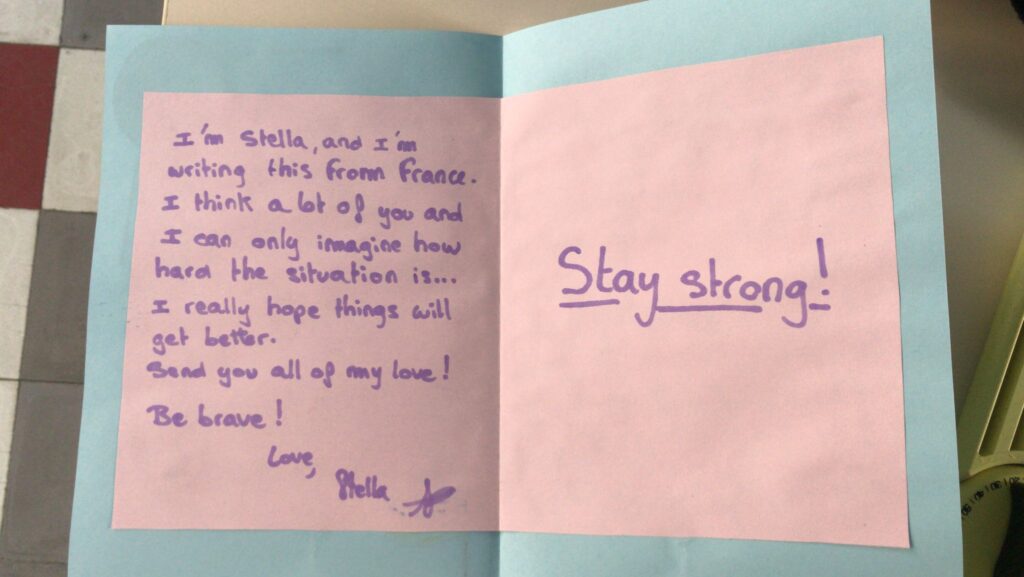 I'm Stella, and I'm
writing this from France.
I think a lot of you and
I can only imagine how
hard the situation is...
I really hope things will
get better.
Send you all of my love!
Be brave!
Love,
Stella
Stay strong!